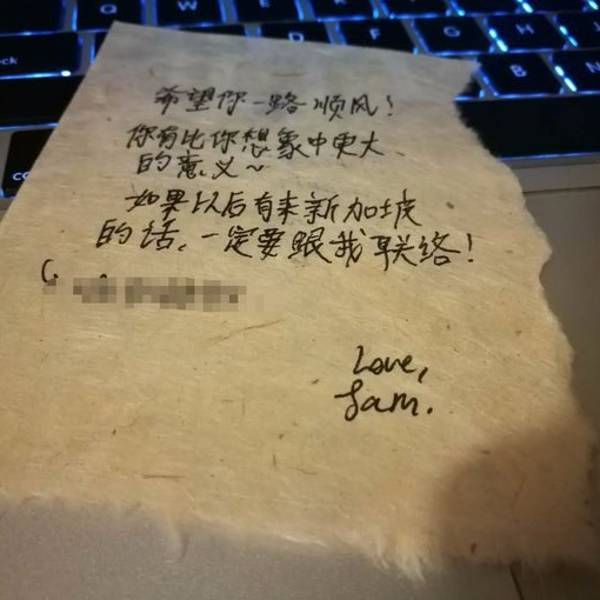 希望你一路顺风！
你有比你想象中更大
的意义~
如果以后有来新加坡
的话、一定要跟我联络！
(
Love,
Sam.
Q
D
F
G
H
B
N
ck